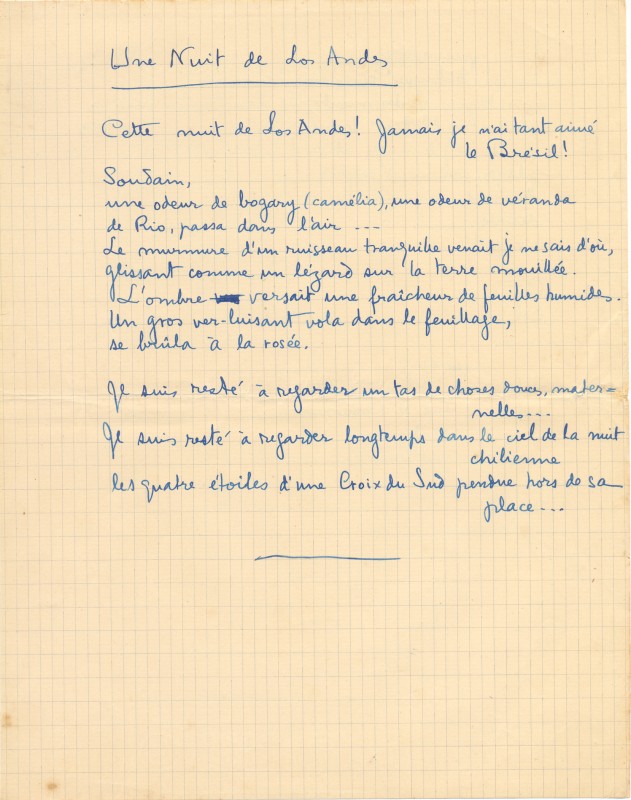 Une Nuit de Los Andes
Cette nuit de Los Andes! Jamais je n'ai tant aimé
le Brésil!
Soudain,
une odeur de bogary (camélia), une odeur de véranda
de Rio, passa dans l'air ---
Le murmure d'un ruisseau tranquille venait je ne sais d'où,
glissant comme un lézard sur la terre mouillée.
L'ombre versait une fraîcheur de feuilles humides.
Un gros ver-luisant vola dans le feuillage,
se brûla à la rosée.
Je suis resté à regarder un tas de choses douces, mater=
nelles...
Je suis resté à regarder longtemps dans le ciel de la nuit
chilienne
les quatre étoiles d'une Croix du Sud perdue hors de sa
place...